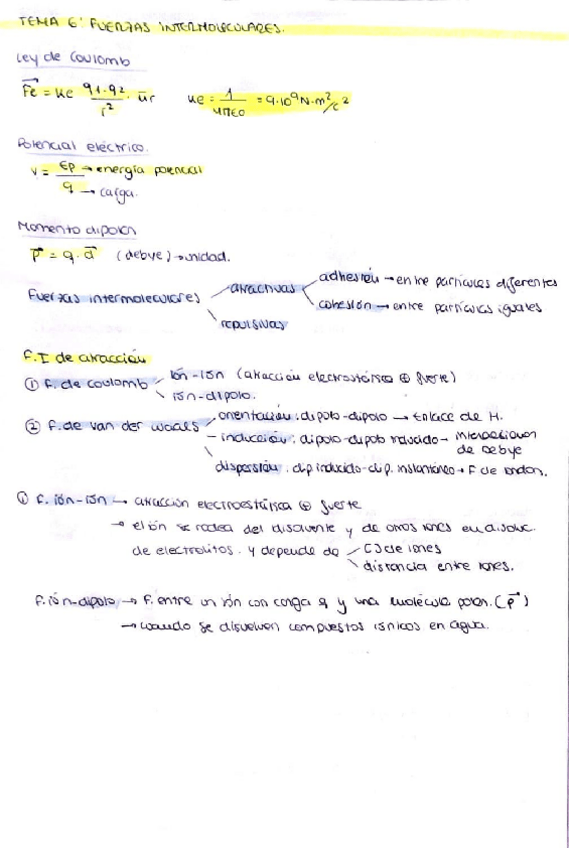 TEMA 6: FUERZAS INTERMOLECULARES.
Ley de Coulomb
Fe = Ke q1·q2/r² · ūr    Ke = 1/4πε0 = 9·10⁹ N·m²/c²
Potencial eléctrico.
V = Ep → energía potencial
q → carga.
Momento dipolar
p = q·d (debye) → unidad.
Fuerzas intermoleculares
atractivas
adhesión → entre partículas diferentes
cohesión → entre partículas iguales
repulsivas
F.I de atracción
① F. de coulomb
ión-ión (atracción electrostática ⊕ fuerte)
ión-dipolo.
② F. de van der waals
orientación: dipolo-dipolo → Enlace de H.
inducción: dipolo-dipolo inducido - interacciones de debye
dispersión: dip inducido-dip. instantáneo → F de london.
① F. ión-ión → atracción electroestática ⊕ fuerte
→ el ión se rodea del disolvente y de otros iones en disoluc.
de electrolitos. y depende de
[ ] de iones
distancia entre iones.
F. ión-dipolo → F. entre un ión con carga q y una molécula polar. (p)
→ cuando se disuelven compuestos iónicos en agua.